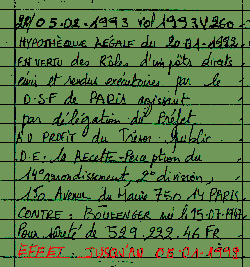 28/05.02.1993 vol 1993V260
HYPOTHEQUE LEGALE du 20.01.1993
EN VERTU des Rôles d'impôts directs
émis et rendus exécutoires par le
D.S.F de PARIS agissant
par délégation du Préfet
AU PROFIT du Trésor Public
D.E: la Recette-Perception du
14° arrondissement, 2° division,
Avenue du Maine 75014 PARIS
CONTRE: BOULENGER né le 15.07.194
Pour sûreté de 529,232.46 FR
EFFET JUSQU'AU 05.01.